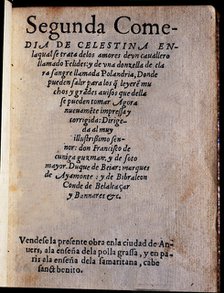 Segunda Come
DIA DE CELESTINA EN
laqual se trata delos amores deun cauallero
llamado Felides: y de vna donzella de cla
ra sangre llamada Polandria, Donde
pueden salir para los q̃ leyerẽ mu
chos y grades auisos que della
se pueden tomar Agora
neuuamẽte impressa y
corrigida: Dirige
da al muy
illustrissimo sen
nor: don Francisco de
çuniga guzman, y de soto
mayor Duque de Beiar: marques
de Ayamonte: y de Gibraleon
Conde de Belalcaçar
y Bannares &c.
Vendese la presente obra enla ciudad de An
uers, ala enseña dela polla grassa, y en pa
ris ala enseña dela samaritana, cabe
sanct benito.